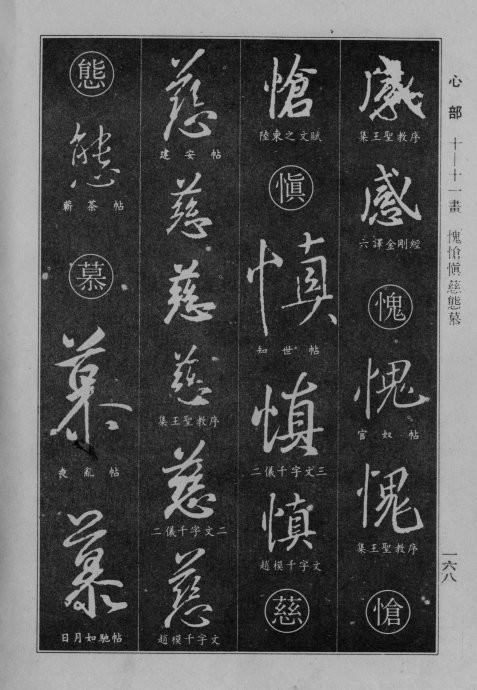 心部 十—十一畫 愧愴慎慈態慕
一六八
感
集王聖教序
感
六譯金剛經
愧
愧
官奴帖
愧
集王聖教序
愴
愴
陸東之文賦
慎
慎
知世帖
慎
二儀千字文三
慎
趙模千字文
慈
慈
建安帖
慈
慈
慈
集王聖教序
慈
二儀千字文二
慈
趙模千字文
態
態
蘄茶帖
慕
慕
喪亂帖
慕
日月如馳帖